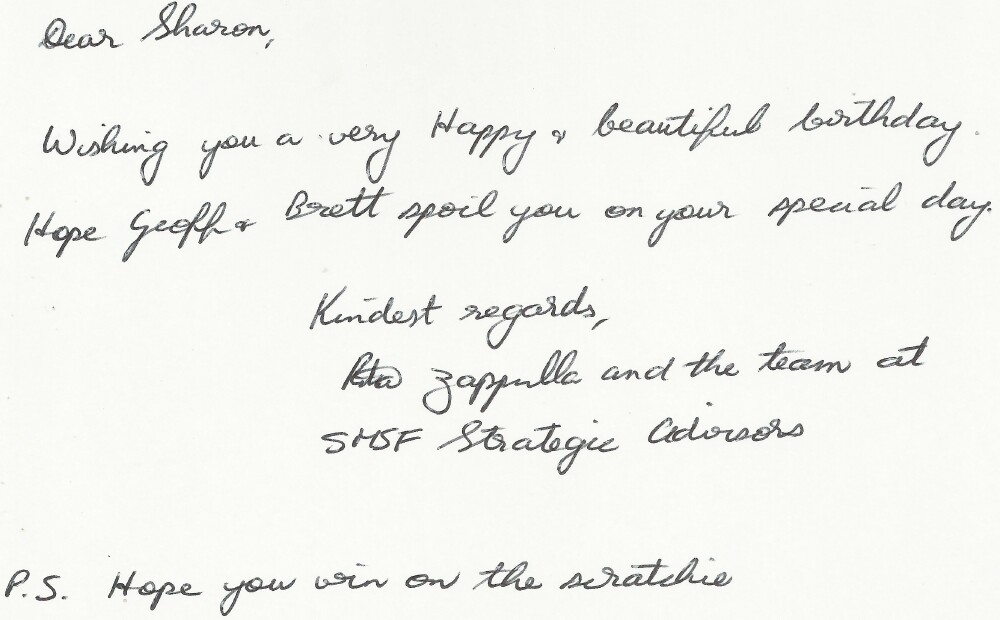 Dear Sharon,
Wishing you a very Happy & beautiful birthday.
Hope Geoff & Brett spoil you on your special day.
Kindest regards,
Rita Zappulla and the team at
SMSF Strategic Advisors
P.S. Hope you win on the scratchie